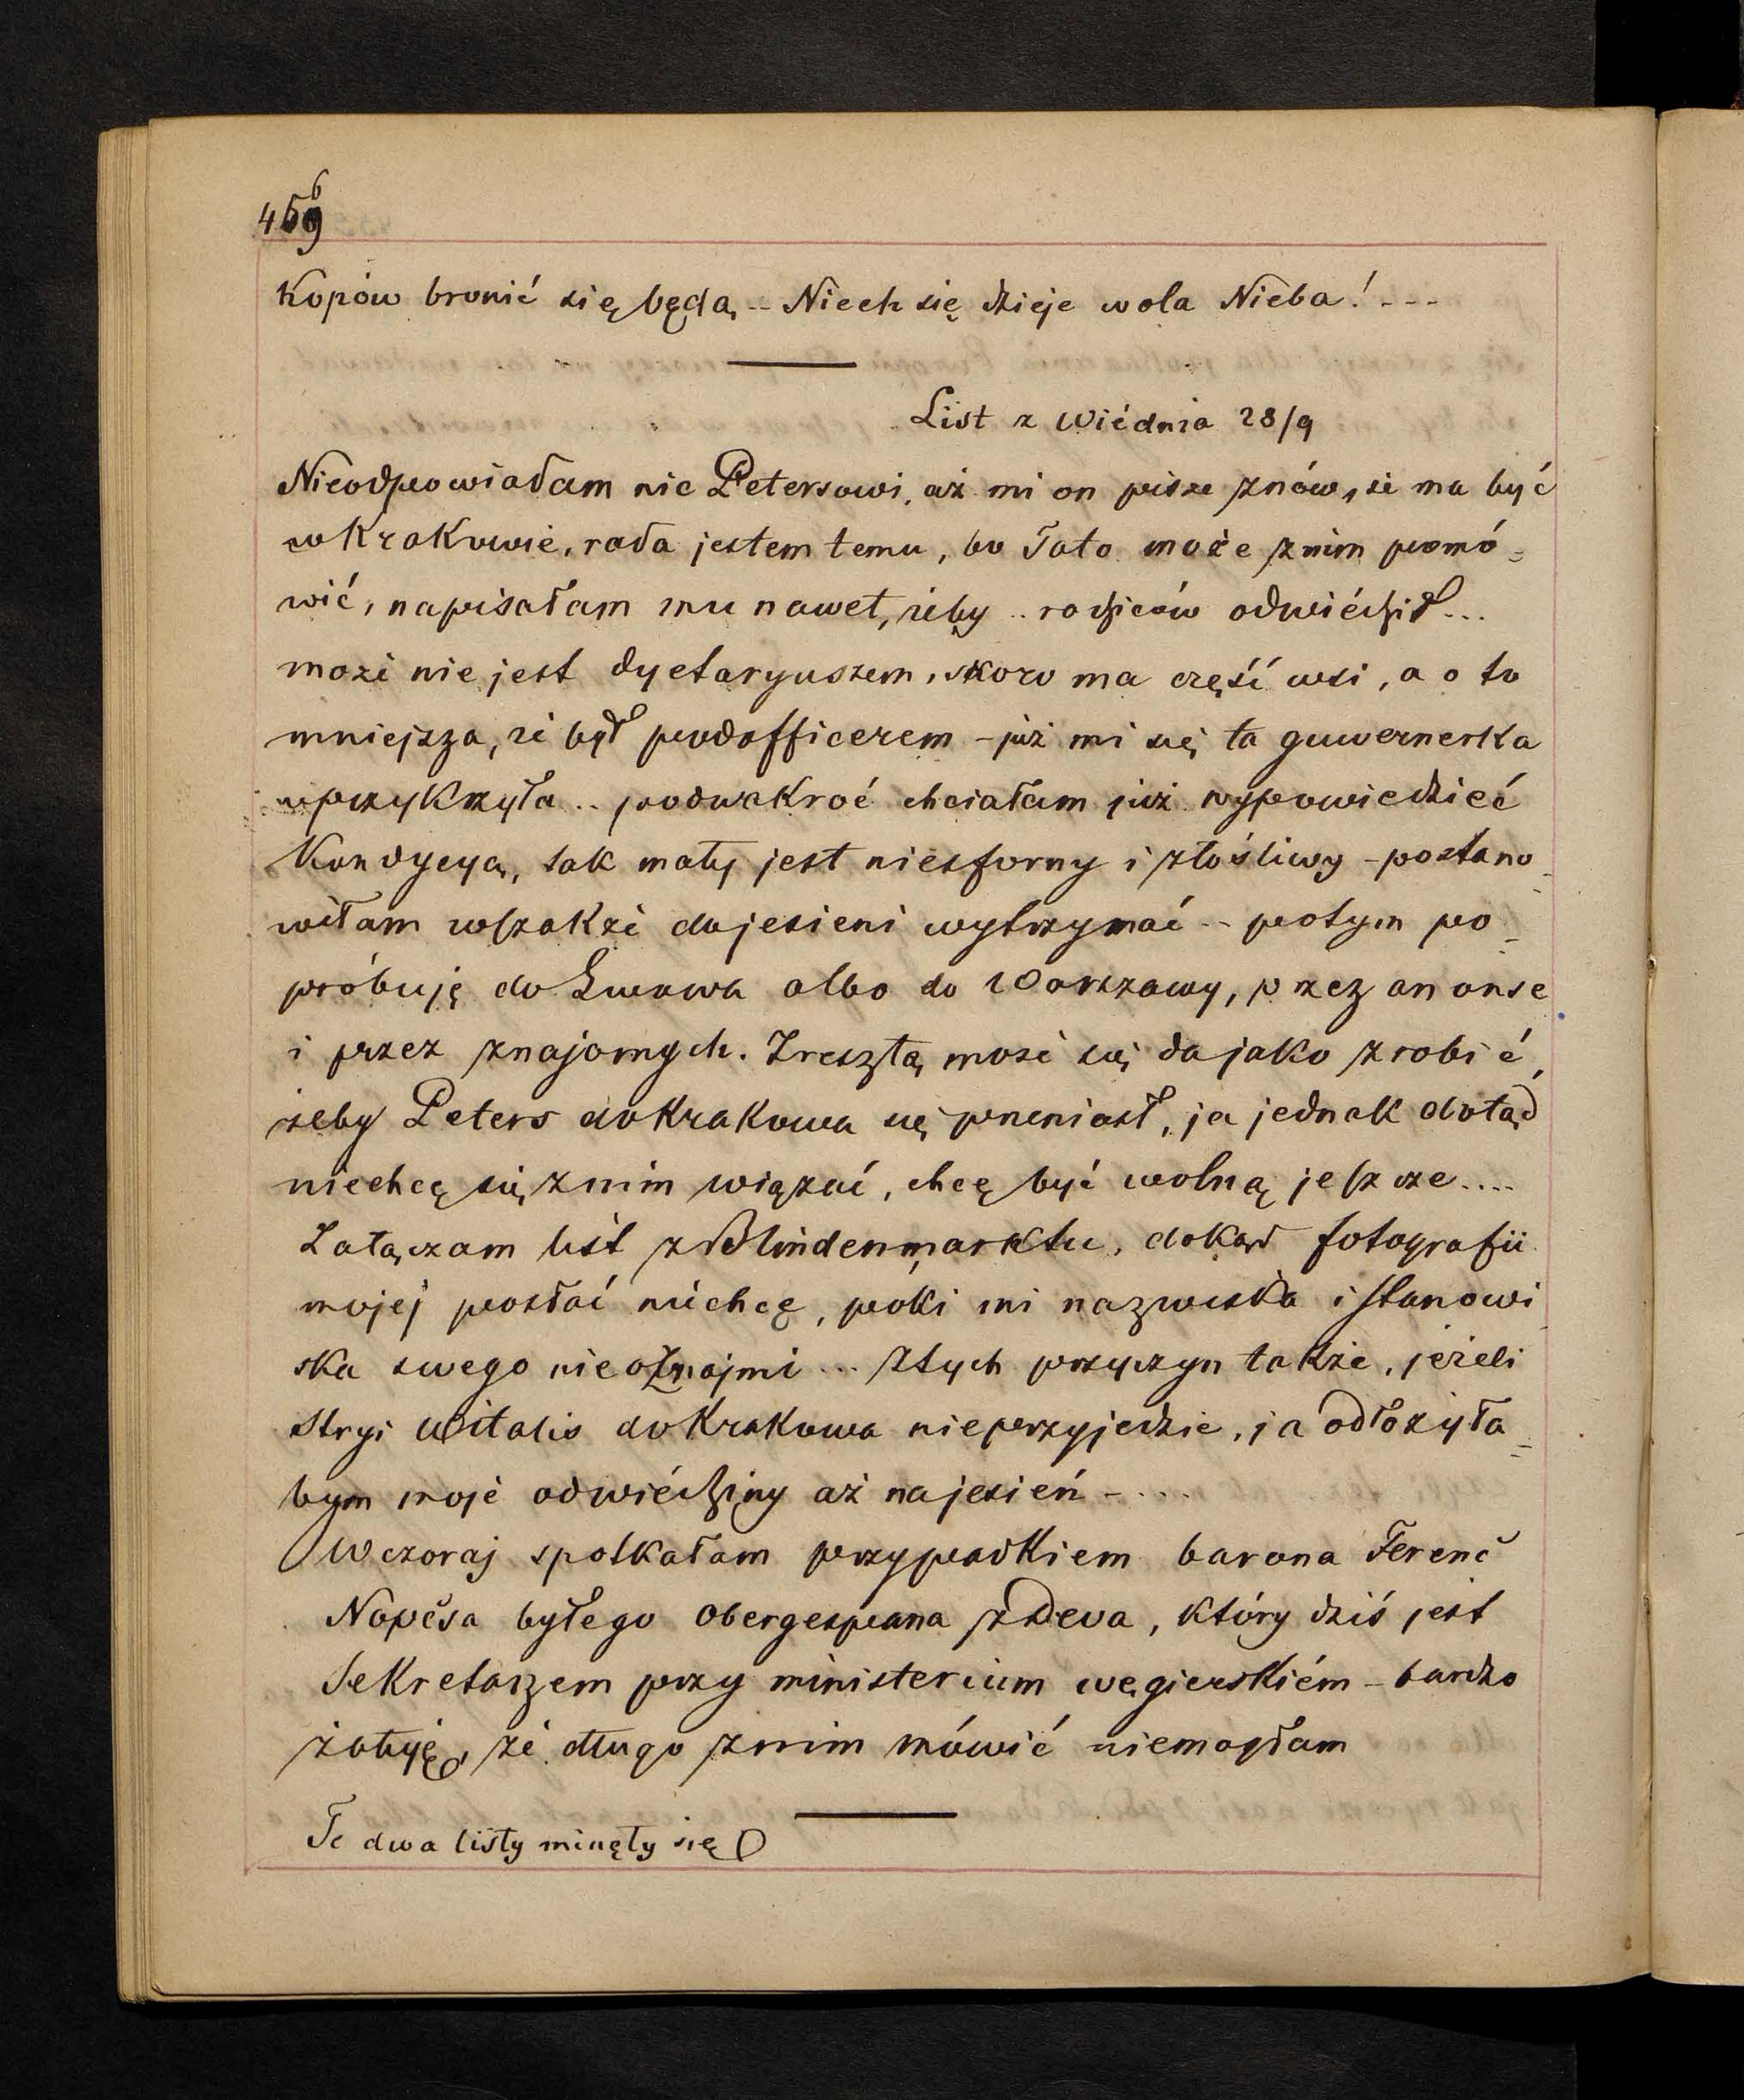 456
kopów bronić się będą -- Niech się dzieje wola Nieba! ---
List z Wiédnia 28/9
Nieodpowiadam nic Petersowi, aż mi on pisze znów, że ma być
w Krakowie, rada jestem temu, bo Tato może z nim pomó=
wić, napisałam mu nawet, żeby .. rodziców odwiédził...
może nie jest dyetaryuszem, skoro ma część wsi, a o to
mniejsza, że był podofficerem - już mi się ta guwernerka
uprzykrzyła .. podwakroć chciałam już wypowiedzieć
Kondycyą, tak mały jest niesforny i złośliwy - postano_
wiłam wszakże do jesieni wytrzymać -- potym po_
próbuję do Lwowa albo do Warszawy, przez anonse
i przez znajomych. Zresztą może się da jako zrobić,
żeby Peters do Krakowa się przeniósł, ja jednak dotąd
niechcę się z nim wiązać, chcę być wolną jeszcze....
Załączam list z Blindenmarktu, dokąd fotografii
mojej posłać niechcę, póki mi nazwiska i stanowi_
ska swego nieoznajmi ... Z tych przyczyn także, jeżeli
stryj Witalis do Krakowa nieprzyjedzie, ja odłożyła_
bym moje odwiédziny aż na jesień - ....
Wczoraj spotkałam przypadkiem barona Ferenč
Nopčsa byłego Obergespana z Deva, który dziś jest
Sekretarzem przy ministerium węgierskiém - bardzo
żałuję, że długo z nim mówić niemogłam
Te dwa listy minęły się